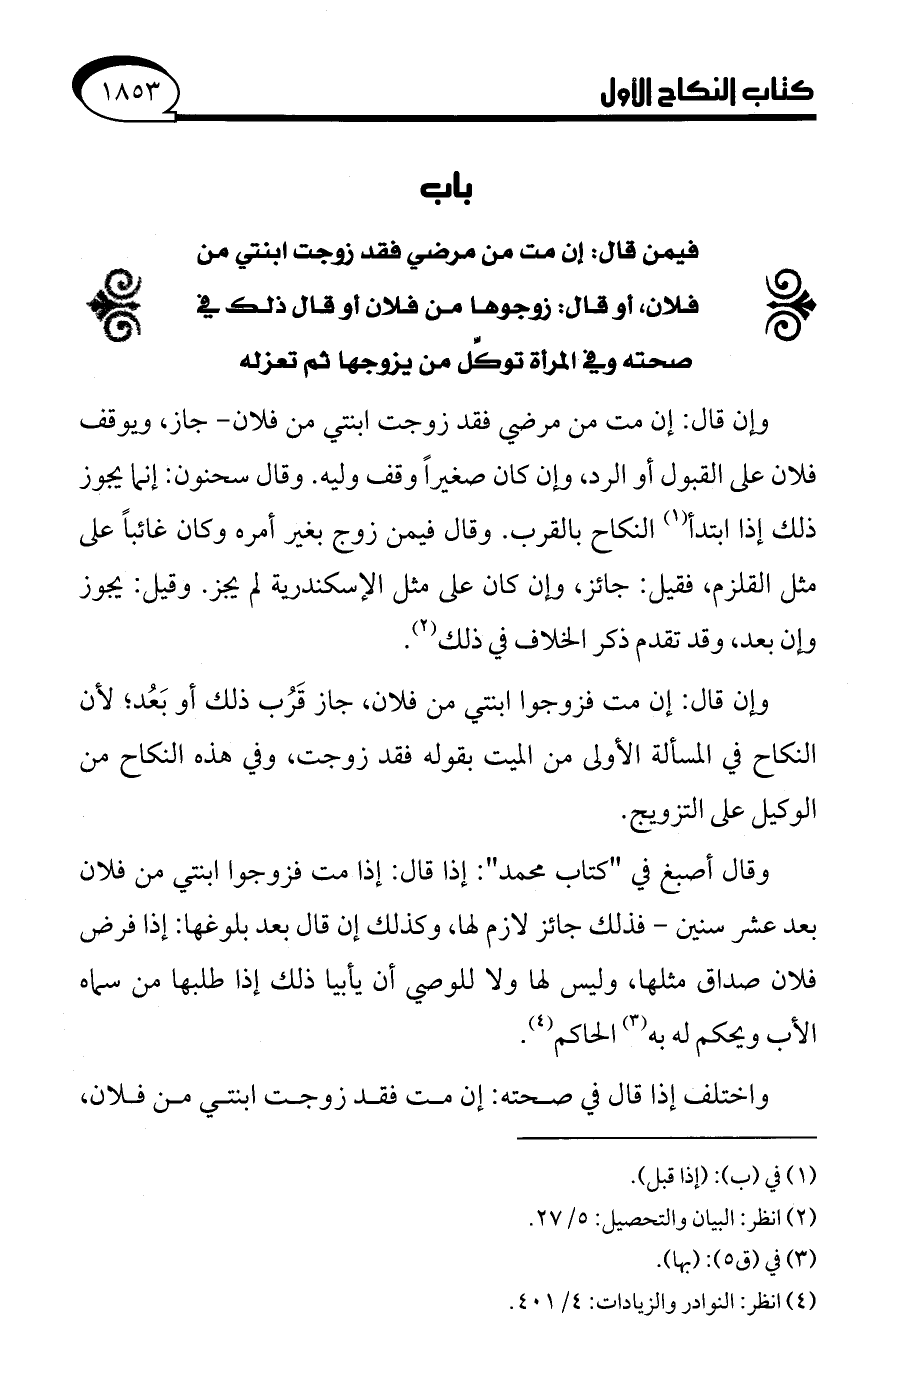 كتاب النكاح الأول
١٨٥٣
باب
فيمن قال: إن مت من مرضي فقد زوجت ابنتي من
فلان، أو قال: زوجوها من فلان أو قال ذلك في
صحته وفي المرأة توكِّل من يزوجها ثم تعزله
وإن قال: إن مت من مرضي فقد زوجت ابنتي من فلان- جاز، ويوقف
فلان على القبول أو الرد، وإن كان صغيراً وقف وليه. وقال سحنون: إنما يجوز
ذلك إذا ابتدأ(١) النكاح بالقرب. وقال فيمن زوج بغير أمره وكان غائباً على
مثل القلزم، فقيل: جائز، وإن كان على مثل الإسكندرية لم يجز. وقيل: يجوز
وإن بعد، وقد تقدم ذكر الخلاف في ذلك(٢).
وإن قال: إن مت فزوجوا ابنتي من فلان، جاز قَرُب ذلك أو بَعُد؛ لأن
النكاح في المسألة الأولى من الميت بقوله فقد زوجت، وفي هذه النكاح من
الوكيل على التزويج.
وقال أصبغ في "كتاب محمد": إذا قال: إذا مت فزوجوا ابنتي من فلان
بعد عشر سنين - فذلك جائز لازم لها، وكذلك إن قال بعد بلوغها: إذا فرض
فلان صداق مثلها، وليس لها ولا للوصي أن يأبيا ذلك إذا طلبها من سماه
الأب ويحكم له به(٣) الحاكم(٤).
واختلف إذا قال في صحته: إن مت فقد زوجت ابنتي من فلان،
(١) في (ب): (إذا قبل).
(٢) انظر: البيان والتحصيل: ٥/ ٢٧.
(٣) في (ق٥): (بها).
(٤) انظر: النوادر والزيادات: ٤/ ٤٠١.